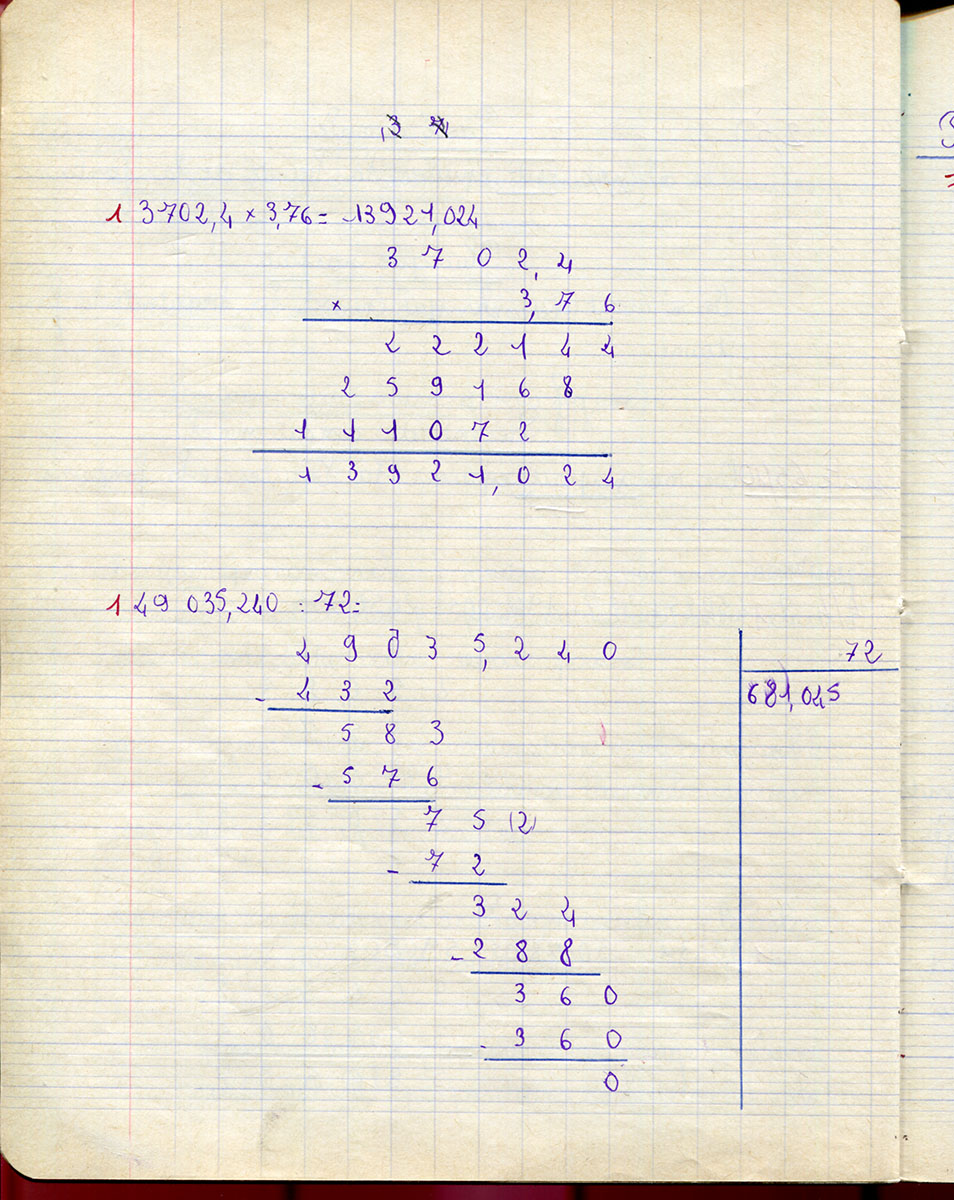 ,3 7
1 3702,4 × 3,76 = 13921,024
3 7 0 2,4
× 3,7 6
2 2 2 1 4 4
2 5 9 1 6 8
1 1 1 0 7 2
1 3 9 2 1,0 2 4
1 49 035,240 : 72 =
4 9 0 3 5,2 4 0 72
- 4 3 2 681,045
5 8 3
- 5 7 6
7 5 (2)
- 7 2
3 2 4
- 2 8 8
3 6 0
- 3 6 0
0